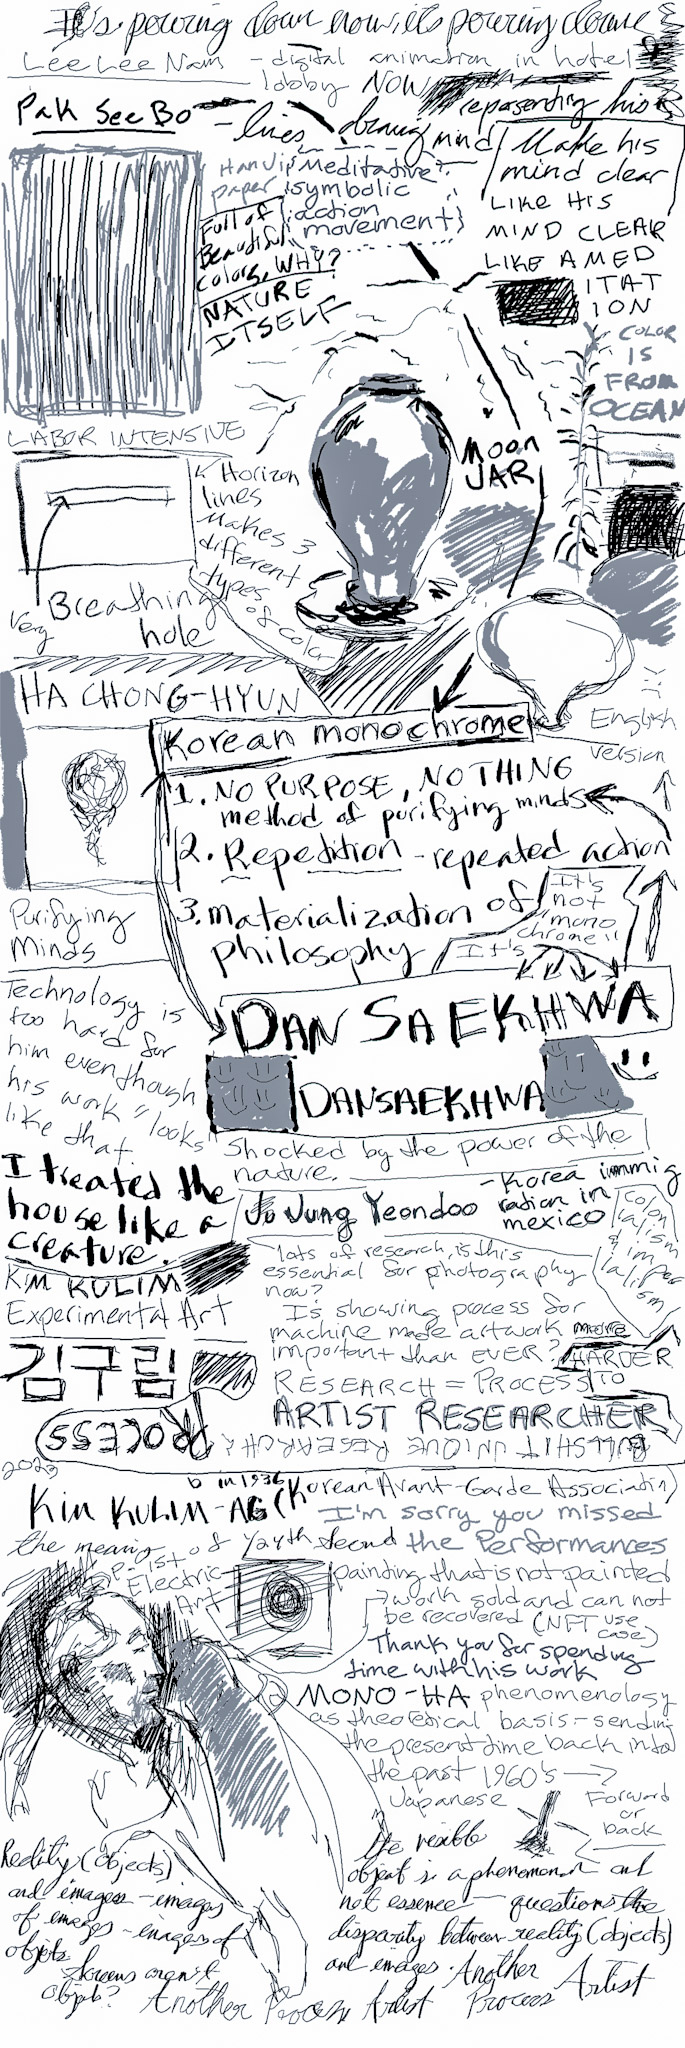 It's pouring down now, it's pouring down
Lee Lee Nam - digital animation in hotel
lobby NOW
Pak Seo Bo - lines
representing his
mind
Hanji
paper
Meditative?
symbolic
action
movement}
Make his
mind clear
LIKE HIS
MIND CLEAR
LIKE A MED
ITAT
ION
Full of
Beautiful
colors, WHY?
NATURE
ITSELF
COLOR
IS
FROM
OCEAN
LABOR INTENSIVE
MOON
JAR
Horizon
lines
Makes 3
different
types
of color
Very
Breathing
hole
HA CHONG-HYUN
Korean monochrome
English
version
1. NO PURPOSE, NOTHING
method of purifying minds
2. Repedition - repeated action
3. materialization of
philosophy
It's
not
"mono
chrome"
It's
Purifying
Minds
DANSAEKHWA
DANSAEKHWA
Technology is
too hard for
him even though
his work "looks"
like that
Shocked by the power of the
nature.
I treated the
house like a
creature.
Ju Jung Yeondoo
- Korea immig
ration in
mexico
colon
ialism
& im
per
ialism
KIM KULIM
Experimental Art
김구림
lots of research, is this
essential for photography
now?
Is showing process for
machine made artwork more
important than EVER?
HARDER
RESEARCH = PROCESS TO
ARTIST RESEARCHER
BULLSHIT UNIQUE RESEARCH
PROCESS
2023
b in 1936
Kim KULIM - AG (Korean Avant-Garde Associatin)
I'm sorry you missed
the Performances
the meaning of 1/24th Second
P - 1st
Electric
Art
painting that is not painted
work sold and can not
be recovered (NFT use
case)
Thank you for spending
time with his work
MONO-HA phenomenology
as theoretical basis - sending
the present time back into
the past 1960's
Japanese
Forward
or
back
the visible
object is a phenomenon and
not essence — questions the
disparity between reality (objects)
and images. Another
Process Artist
Reality (objects)
and images - images
of images - images of
objects
Screens aren't
objects?
Another Process Artist